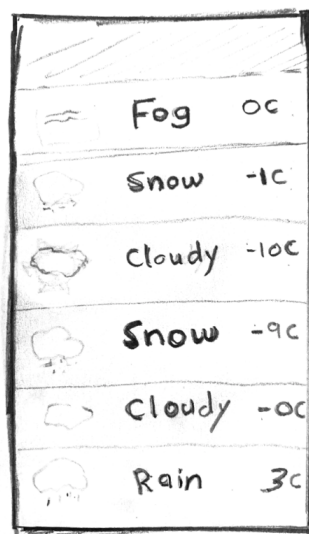 Fog 0C
Snow -1C
Cloudy -10C
Snow -9C
Cloudy -0C
Rain 3C